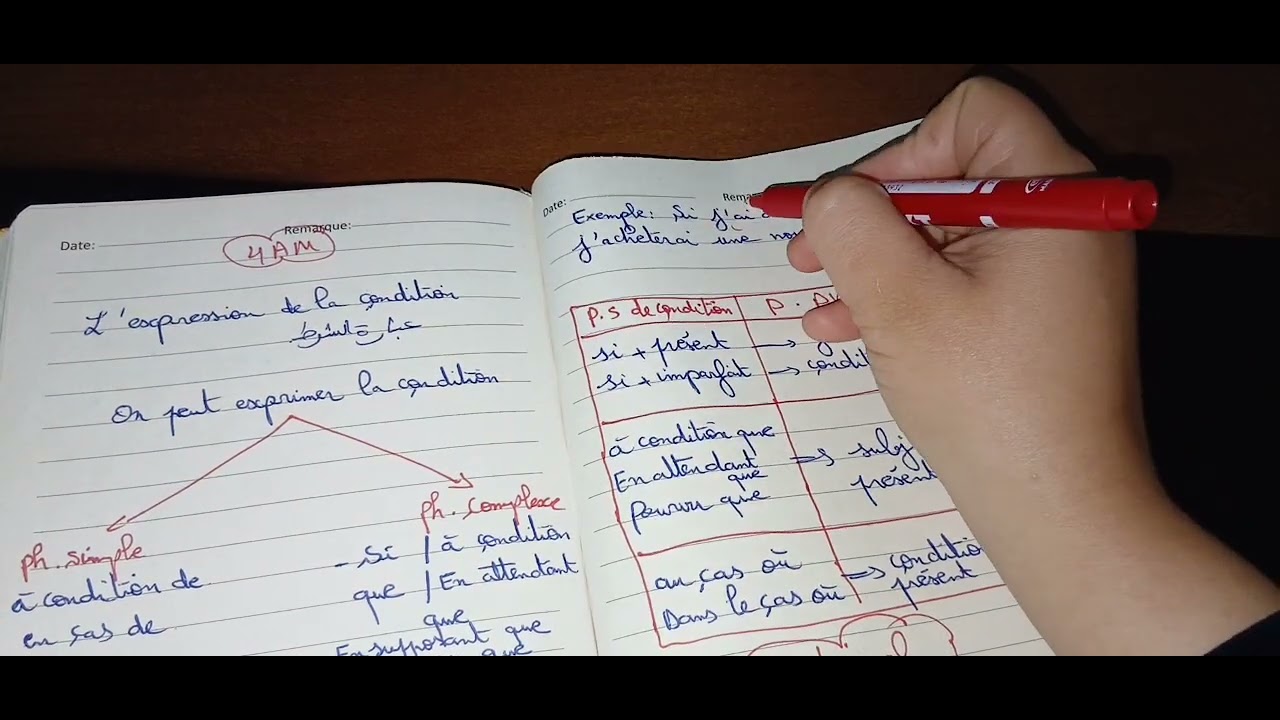 Date:
Remarque:
4AM
L'expression de la condition
عبارة الشرط
On peut exprimer la condition
ph. simple
à condition de
en ças de
ph. complexe
- Si / à condition
que / En attendant
que
En supposant que
que
Date:
Exemple: Si j'ai
j'achèterai une
P.S de condition
P.
si + présent →
si + imparfait →
à condition que
En attendant
que
Pourvu que
⇒ subj
présent
au ças où
Dans le ças où
⇒ conditio
présent